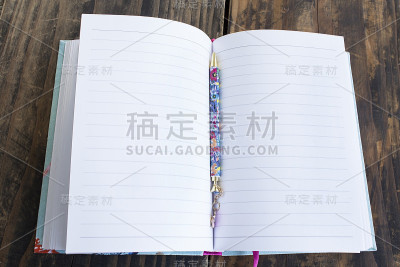 稿定素材
稿定素材
稿定素材
稿定素材
SUCAI.GAODING.COM
稿定素材
稿定素材
稿定素材